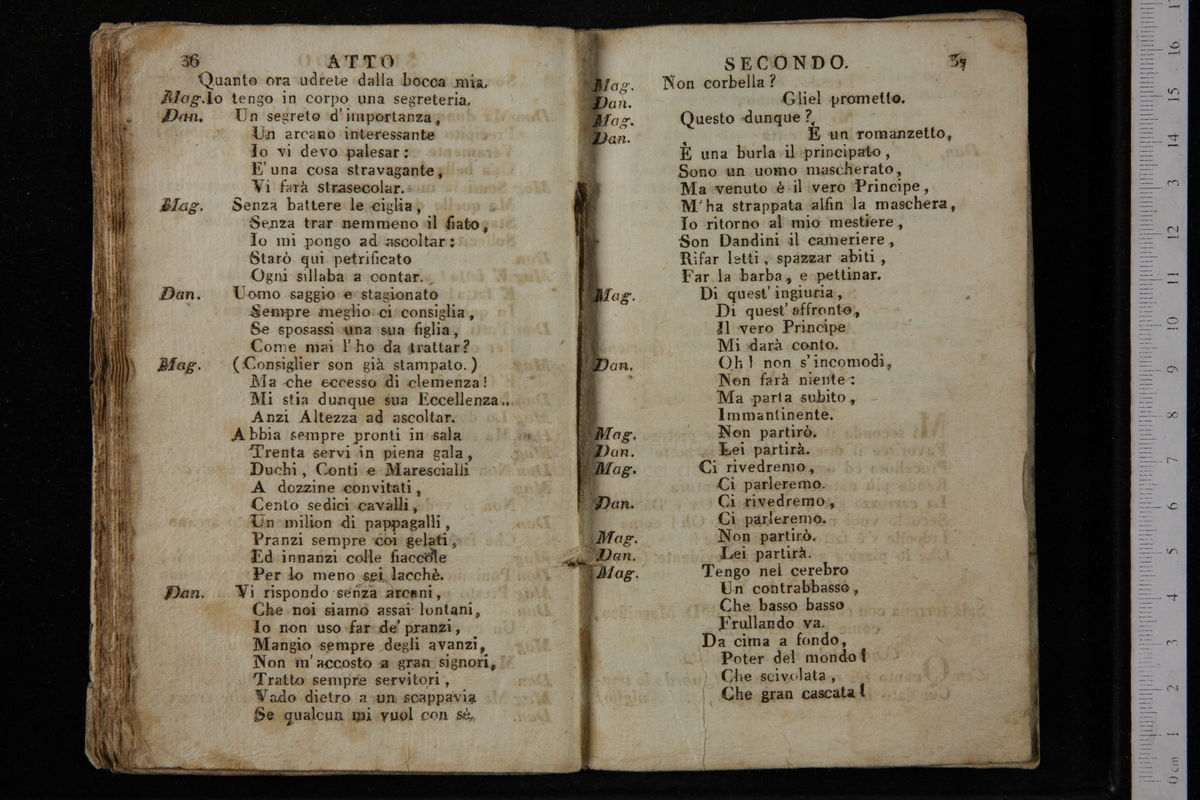 36 ATTO
Quanto ora udrete dalla bocca mia.
Mag. Io tengo in corpo una segreteria.
Dan. Un segreto d'importanza,
Un arcano interessante
Io vi devo palesar:
E' una cosa stravagante,
Vi farà strasecolar.
Mag. Senza battere le ciglia,
Senza trar nemmeno il fiato,
Io mi pongo ad ascoltar:
Starò qui petrificato
Ogni sillaba a contar.
Dan. Uomo saggio e stagionato
Sempre meglio ci consiglia,
Se sposassi una sua figlia,
Come mai l'ho da trattar?
Mag. (Consiglier son già stampato.)
Ma che eccesso di clemenza!
Mi stia dunque sua Eccellenza..
Anzi Altezza ad ascoltar.
Abbia sempre pronti in sala
Trenta servi in piena gala,
Duchi, Conti e Marescialli
A dozzine convitati,
Cento sedici cavalli,
Un milion di pappagalli,
Pranzi sempre coi gelati,
Ed innanzi colle fiaccole
Per lo meno sei lacchè.
Dan. Vi rispondo senza arcani,
Che noi siamo assai lontani,
Io non uso far de' pranzi,
Mangio sempre degli avanzi,
Non m'accosto a gran signori,
Tratto sempre servitori,
Vado dietro a un scappavia
Se qualcun mi vuol con sè.
SECONDO. 37
Mag. Non corbella?
Dan. Gliel prometto.
Mag. Questo dunque?
Dan. E un romanzetto,
È una burla il principato,
Sono un uomo mascherato,
Ma venuto è il vero Principe,
M'ha strappata alfin la maschera,
Io ritorno al mio mestiere,
Son Dandini il cameriere,
Rifar letti, spazzar abiti,
Far la barba, e pettinar.
Mag. Di quest'ingiuria,
Di quest'affronto,
Il vero Principe
Mi darà conto.
Dan. Oh! non s'incomodi,
Non farà niente:
Ma parta subito,
Immantinente.
Mag. Non partirò.
Dan. Lei partirà.
Mag. Ci rivedremo,
Ci parleremo.
Dan. Ci rivedremo,
Ci parleremo.
Mag. Non partirò.
Dan. Lei partirà.
Mag. Tengo nel cerebro
Un contrabbasso,
Che basso basso
Frullando va.
Da cima a fondo,
Poter del mondo!
Che scivolata,
Che gran cascata!
0 cm 1 2 3 4 5 6 7 8 9 10 11 12 13 14 15 16 17